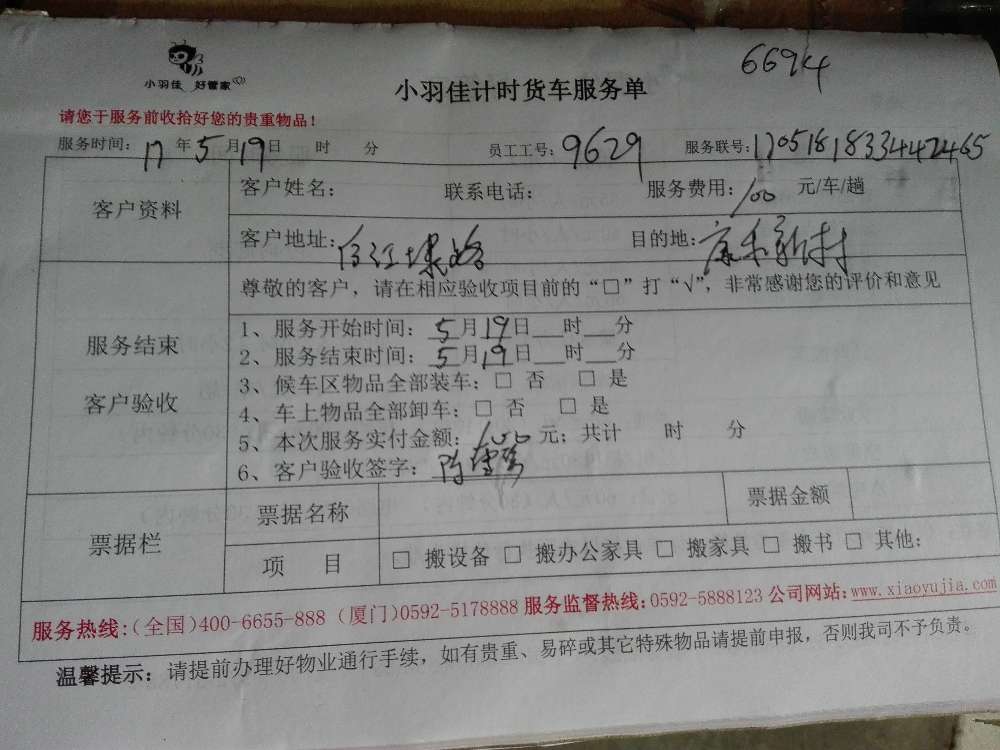 小羽佳 好管家
小羽佳计时货车服务单
6694
请您于服务前收拾好您的贵重物品！
服务时间：17年5月19日 时 分 员工工号：9629 服务联号：170518183344 2465
客户资料
客户姓名： 联系电话： 服务费用：100 元/车/趟
客户地址： 目的地：康乐新村
服务结束
客户验收
尊敬的客户，请在相应验收项目前的“□”打“√”，非常感谢您的评价和意见
1、服务开始时间：5月19日__时__分
2、服务结束时间：5月19日__时__分
3、候车区物品全部装车：□ 否 □ 是
4、车上物品全部卸车：□ 否 □ 是
5、本次服务实付金额：100 元；共计 时 分
6、客户验收签字：陈
票据栏
票据名称 票据金额
项 目 □ 搬设备 □ 搬办公家具 □ 搬家具 □ 搬书 □ 其他：
服务热线：（全国）400-6655-888（厦门）0592-5178888 服务监督热线：0592-5888123 公司网站：www.xiaoyujia.com
温馨提示：请提前办理好物业通行手续，如有贵重、易碎或其它特殊物品请提前申报，否则我司不予负责。